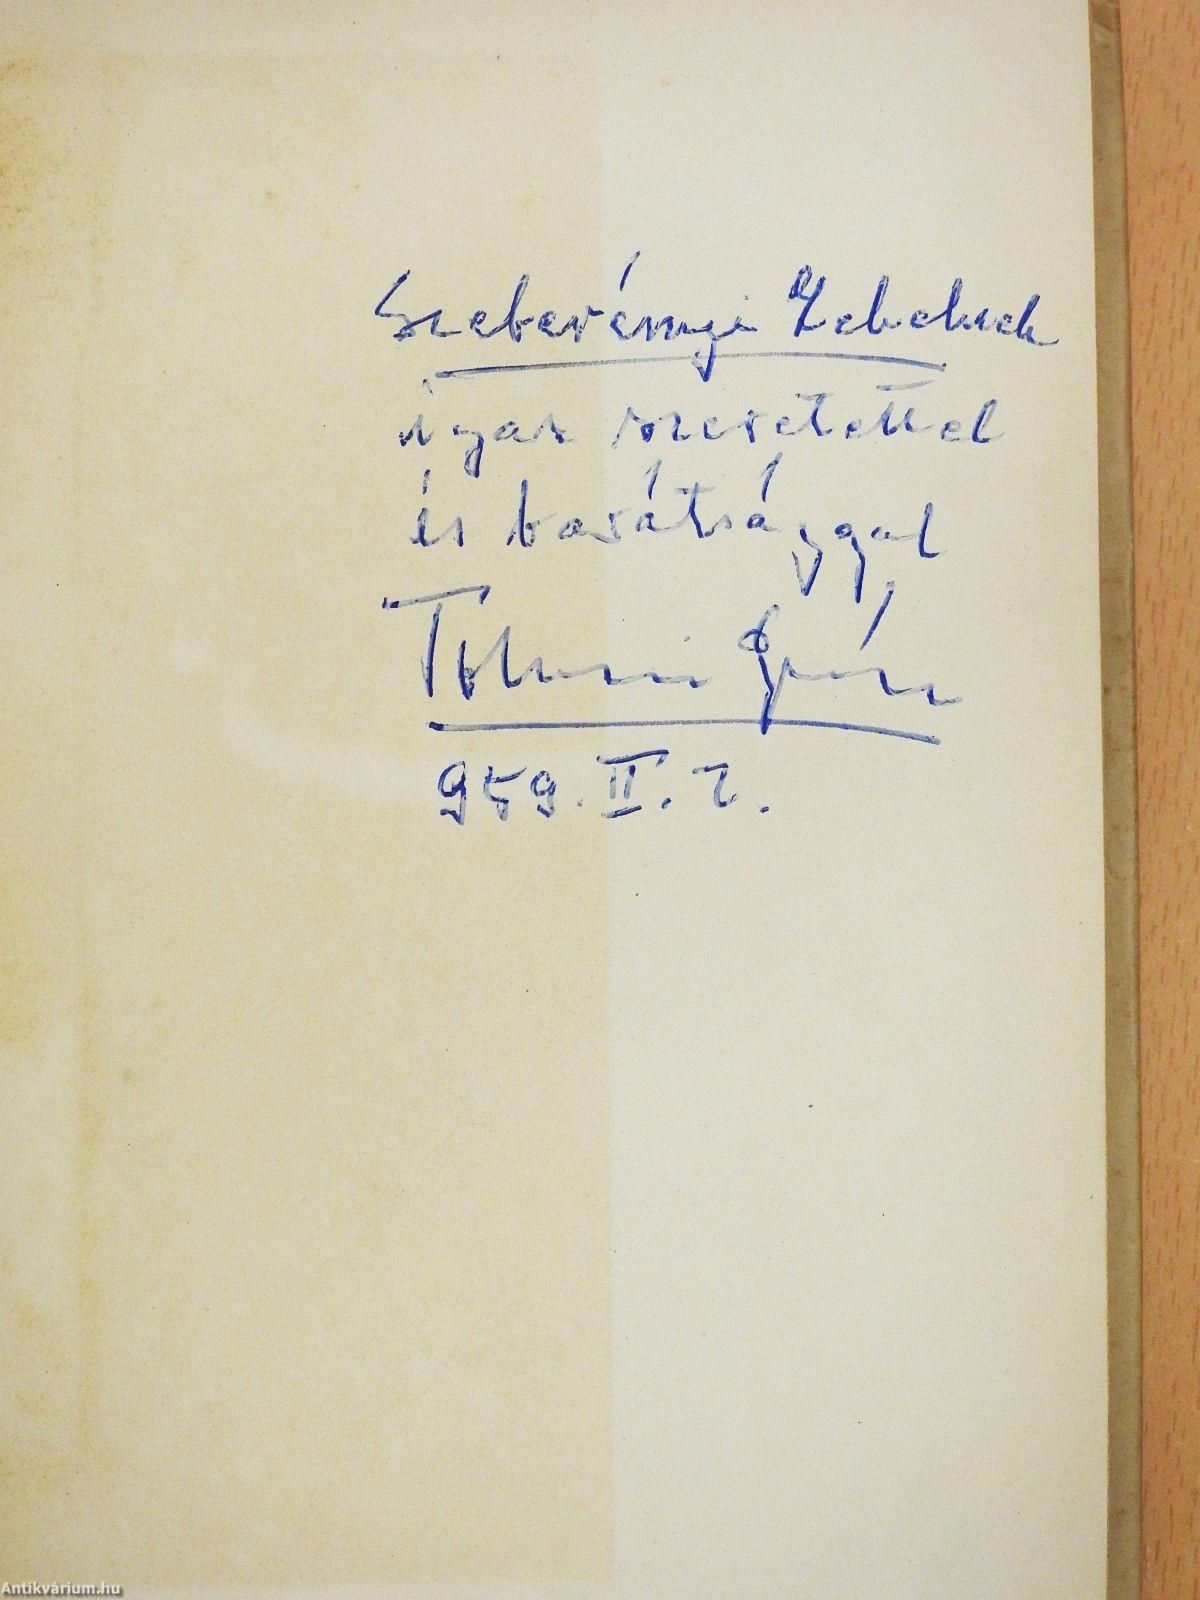 Szeberényi Lehelnek
igaz szeretettel
és barátsággal
Tolnai Gábor
959. II. 7.
Antikvárium.hu